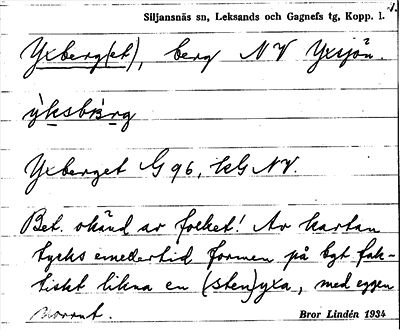 Siljansnäs sn, Leksands och Gagnefs tg, Kopp. l. 1.
Yxberg(et), berg NV Yxsjön.
ỳksbàrg
Yxberget G 96, kG NV.
Bet. okänd av folket! Av kartan
tycks emellertid formen på bgt fak-
tiskt likna en (sten)yxa, med eggen
norrut.
Bror Lindén 1934